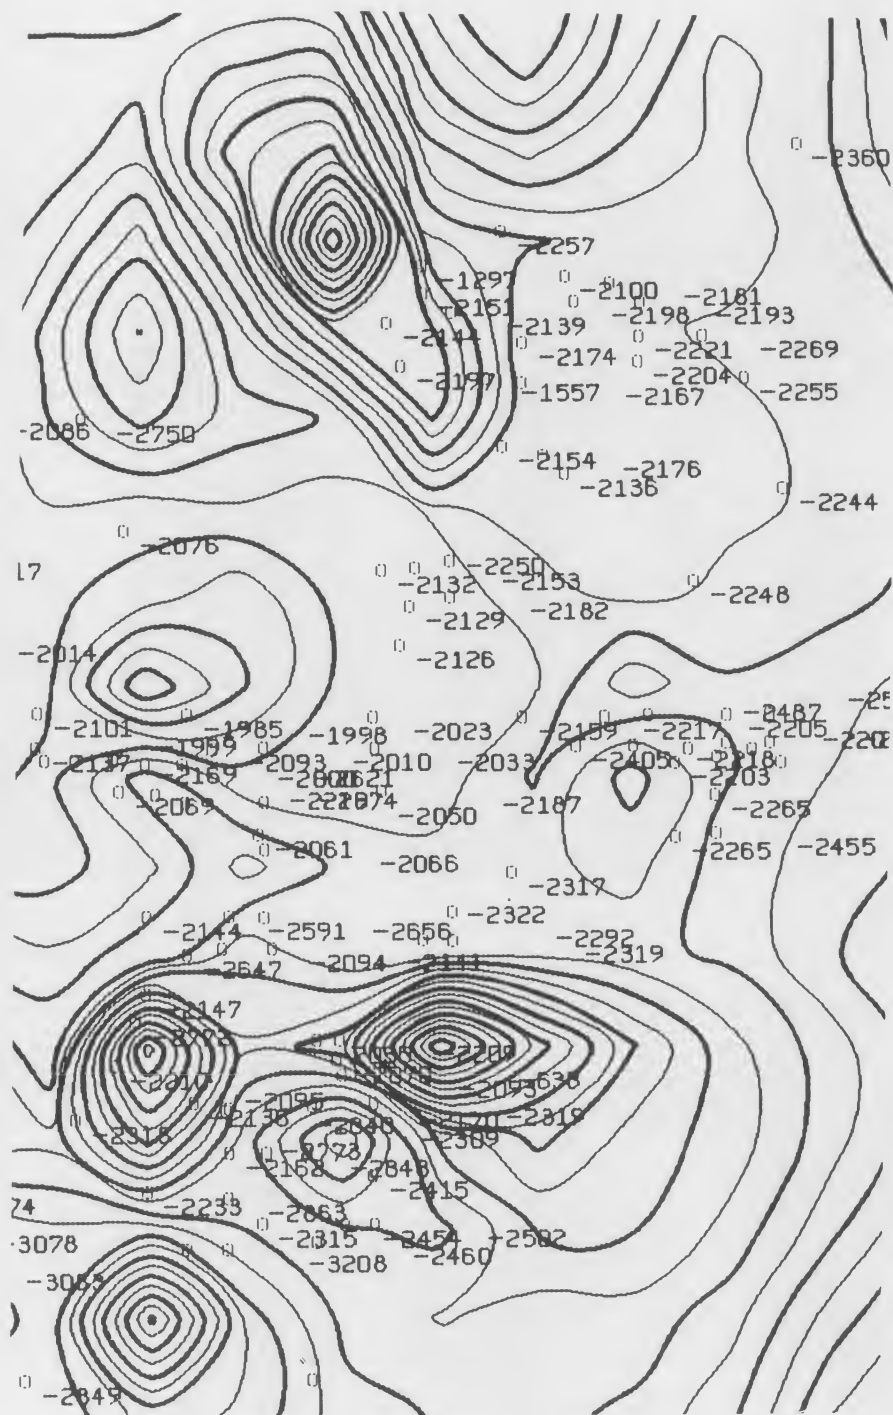 -2360
-2257
-1297
-2100 -2181
-2151 -2198 -2193
-2144 -2139
-2174 -2221 -2269
-2197 -2204
-1557 -2167 -2255
-2086 -2750
-2154 -2176
-2136
-2244
-2076
17 -2250
-2132 -2153
-2248
-2129 -2182
-2014 -2126
-2487
-2101 -1985 -1998 -2023 -2159 -2217 -2205
-2137 -2093 -2010 -2033 -2405 -2218
-2169 -2203
-2069 -2050 -2187 -2265
-2061 -2066 -2265 -2455
-2317
-2322
-2144 -2591 -2656 -2292
-2319
-2647 -2094 -2141
-2147
-2095
-2093
-2138 -2319
-2318 -2309
-2773
-2162 -2848
-2415
74 -2233 -2863
-3078 -2315 -2454 -2502
-3208 -2460
-3083
-2849